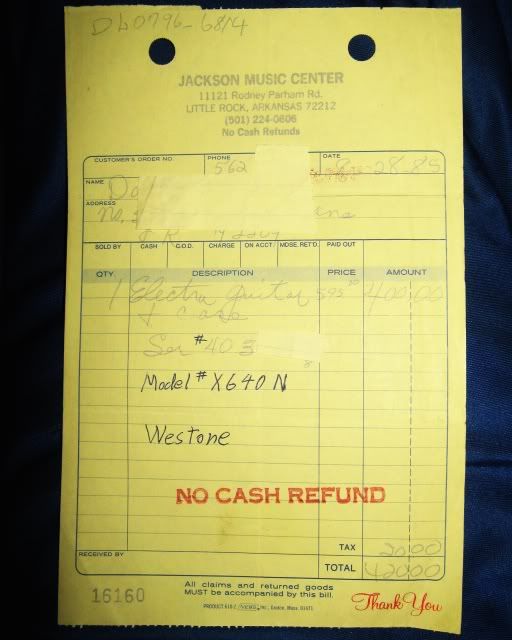 Db0796-6814
JACKSON MUSIC CENTER
11121 Rodney Parham Rd.
LITTLE ROCK, ARKANSAS 72212
(501) 224-0606
No Cash Refunds
CUSTOMER'S ORDER NO. PHONE DATE
562 8-28-85
NAME
ADDRESS
SOLD BY CASH C.O.D. CHARGE ON ACCT. MDSE. RET'D. PAID OUT
QTY. DESCRIPTION PRICE AMOUNT
1 Electra guitar 595 400.00
& case
Ser # 40 3
Model # X640N
Westone
NO CASH REFUND
TAX 20.00
RECEIVED BY
TOTAL 420.00
16160
All claims and returned goods
MUST be accompanied by this bill.
Thank You
PRODUCT 610-2 NEBS Inc., Groton, Mass. 01471